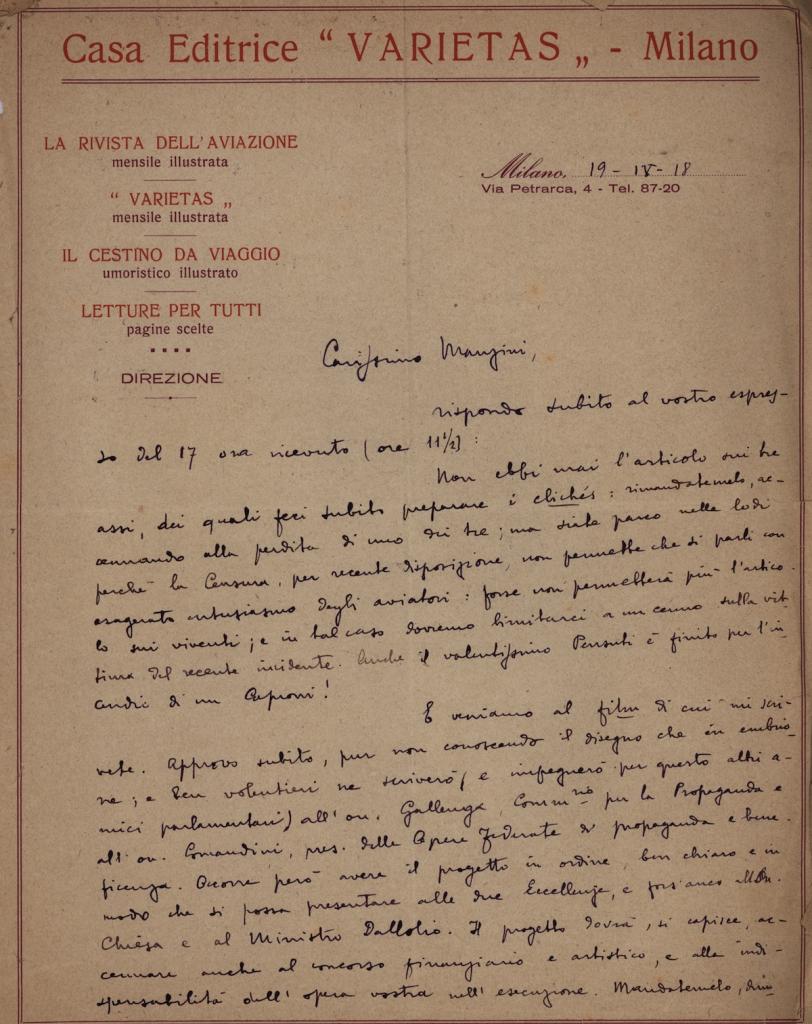 Casa Editrice “ VARIETAS „ - Milano
LA RIVISTA DELL'AVIAZIONE
mensile illustrata
“ VARIETAS „
mensile illustrata
IL CESTINO DA VIAGGIO
umoristico illustrato
LETTURE PER TUTTI
pagine scelte
DIREZIONE
Milano, 19 - IV - 18
Via Petrarca, 4 - Tel. 87-20
Carissimo Manzini,
rispondo subito al vostro espres-
so del 17 ora ricevuto (ore 11½):
Non ebbi mai l'articolo sui tre
assi, dei quali feci subito preparare i clichés: rimandatemelo, ac-
cennando alla perdita di uno dei tre; ma siate parco nelle lodi
perchè la Censura, per recente disposizione, non permette che si parli con
esagerato entusiasmo degli aviatori: forse non permetterà più l'artico-
lo sui viventi; e in tal caso dovremo limitarci a un cenno sulla vit-
tima del recente incidente. Anche il valentissimo Pensuti è finito per l'in-
cendio di un Caproni!
E veniamo al film di cui mi scri-
vete. Approvo subito, pur non conoscendo il disegno che in embrio-
ne; e ben volentieri ne scriverò (e impegnerò per questo altri a-
mici parlamentari) all'on. Gallenga, Comm.rio per la Propaganda e
all'on. Comandini, pres. delle Opere Federate di propaganda e bene-
ficenza. Occorre però avere il progetto in ordine, ben chiaro e in
modo che si possa presentare alle due Eccellenze, e fors'anco
Chiesa e al Ministro Dallolio. Il progetto dovrà, si capisce, ac-
cennare anche al concorso finanziario e artistico, e alla indi-
spensabilità dell'opera vostra nell'esecuzione. Mandatemelo,